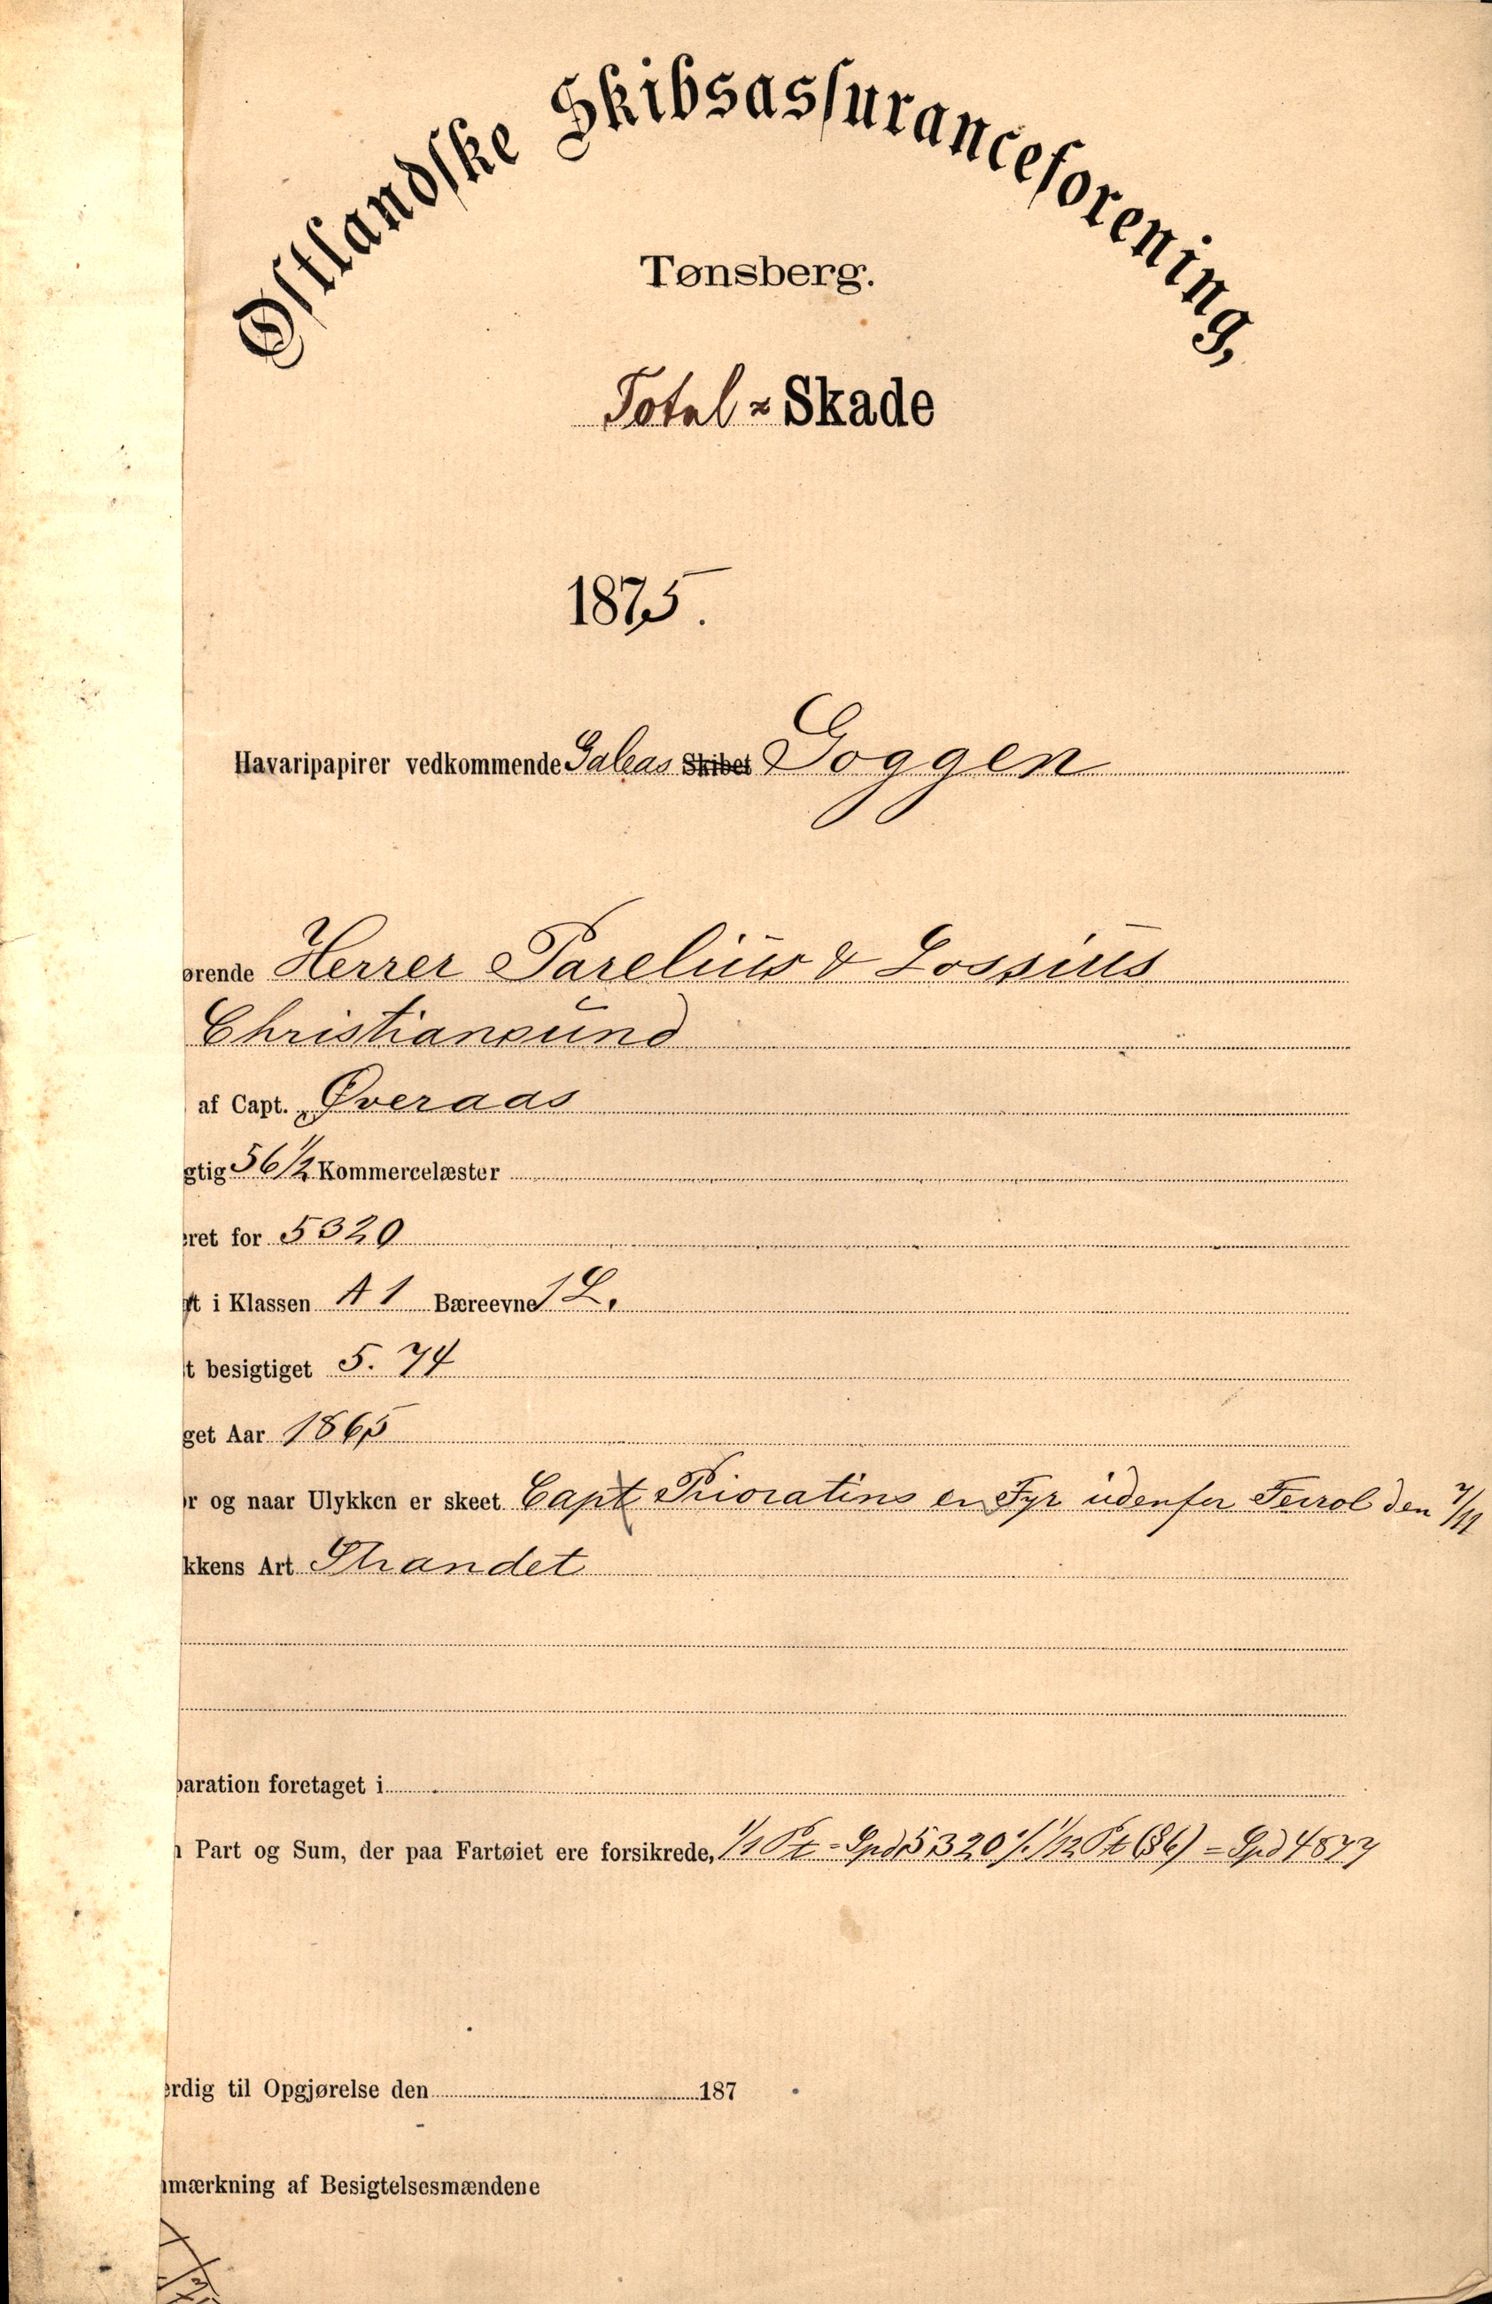 Østlandske Skibsassuranceforening,
Tønsberg.
Total - Skade
1875.
Havaripapirer vedkommende Galeas Skibet Goggen
ørende Herrer Parelius & Lossius
Christiansund
af Capt. Øveraas
gtig 56 1/2 Kommercelæster
eret for 5320
i Klassen A 1 Bæreevne 1 L.
t besigtiget 5. 74
get Aar 1865
or og naar Ulykken er skeet Capt Prioratins en Fyr udenfor Ferrol den 7/11
kkens Art Strandet
paration foretaget i
Part og Sum, der paa Fartøiet ere forsikrede, 1/1 Pt = Spd 5320 ./. 1/12 Pt (§6) = Spd 4877
erdig til Opgjørelse den 187
nmærkning af Besigtelsesmændene